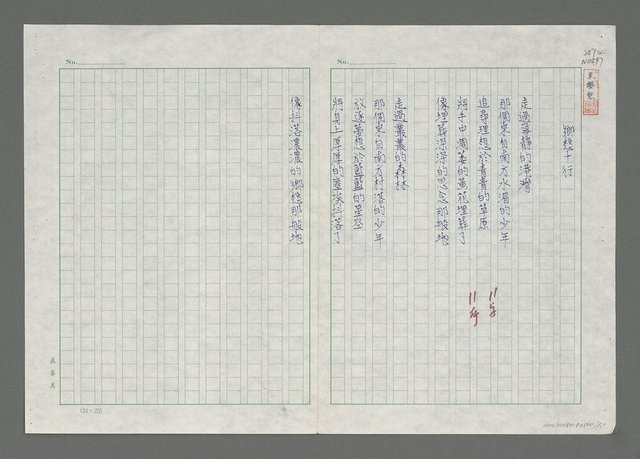 鄉愁十行
走過寧靜的港灣
那個來自南方水湄的少年
追尋理想於青青的草原
將手中凋萎的黃花埋葬了
像埋葬深深的思念那般地
走過叢叢的森林
那個來自南方村落的少年
放逐夢想於藍藍的星空
將身上厚厚的塵埃抖落了
像抖落濃濃的鄉愁那般地
No.
No.
(24×25)